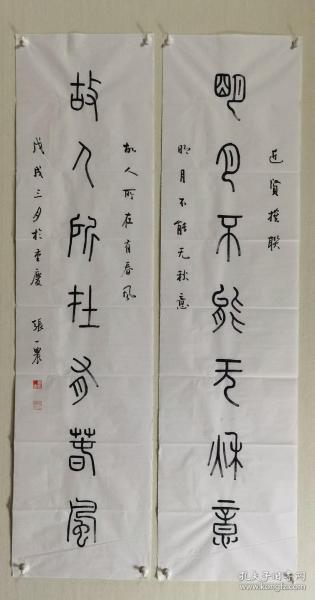 近贤撰联
明月不能无秋意
明月不能无秋意
故人所在有春风
故人所在有春风
戊戌三月於重慶 張一農
孔夫子旧书网